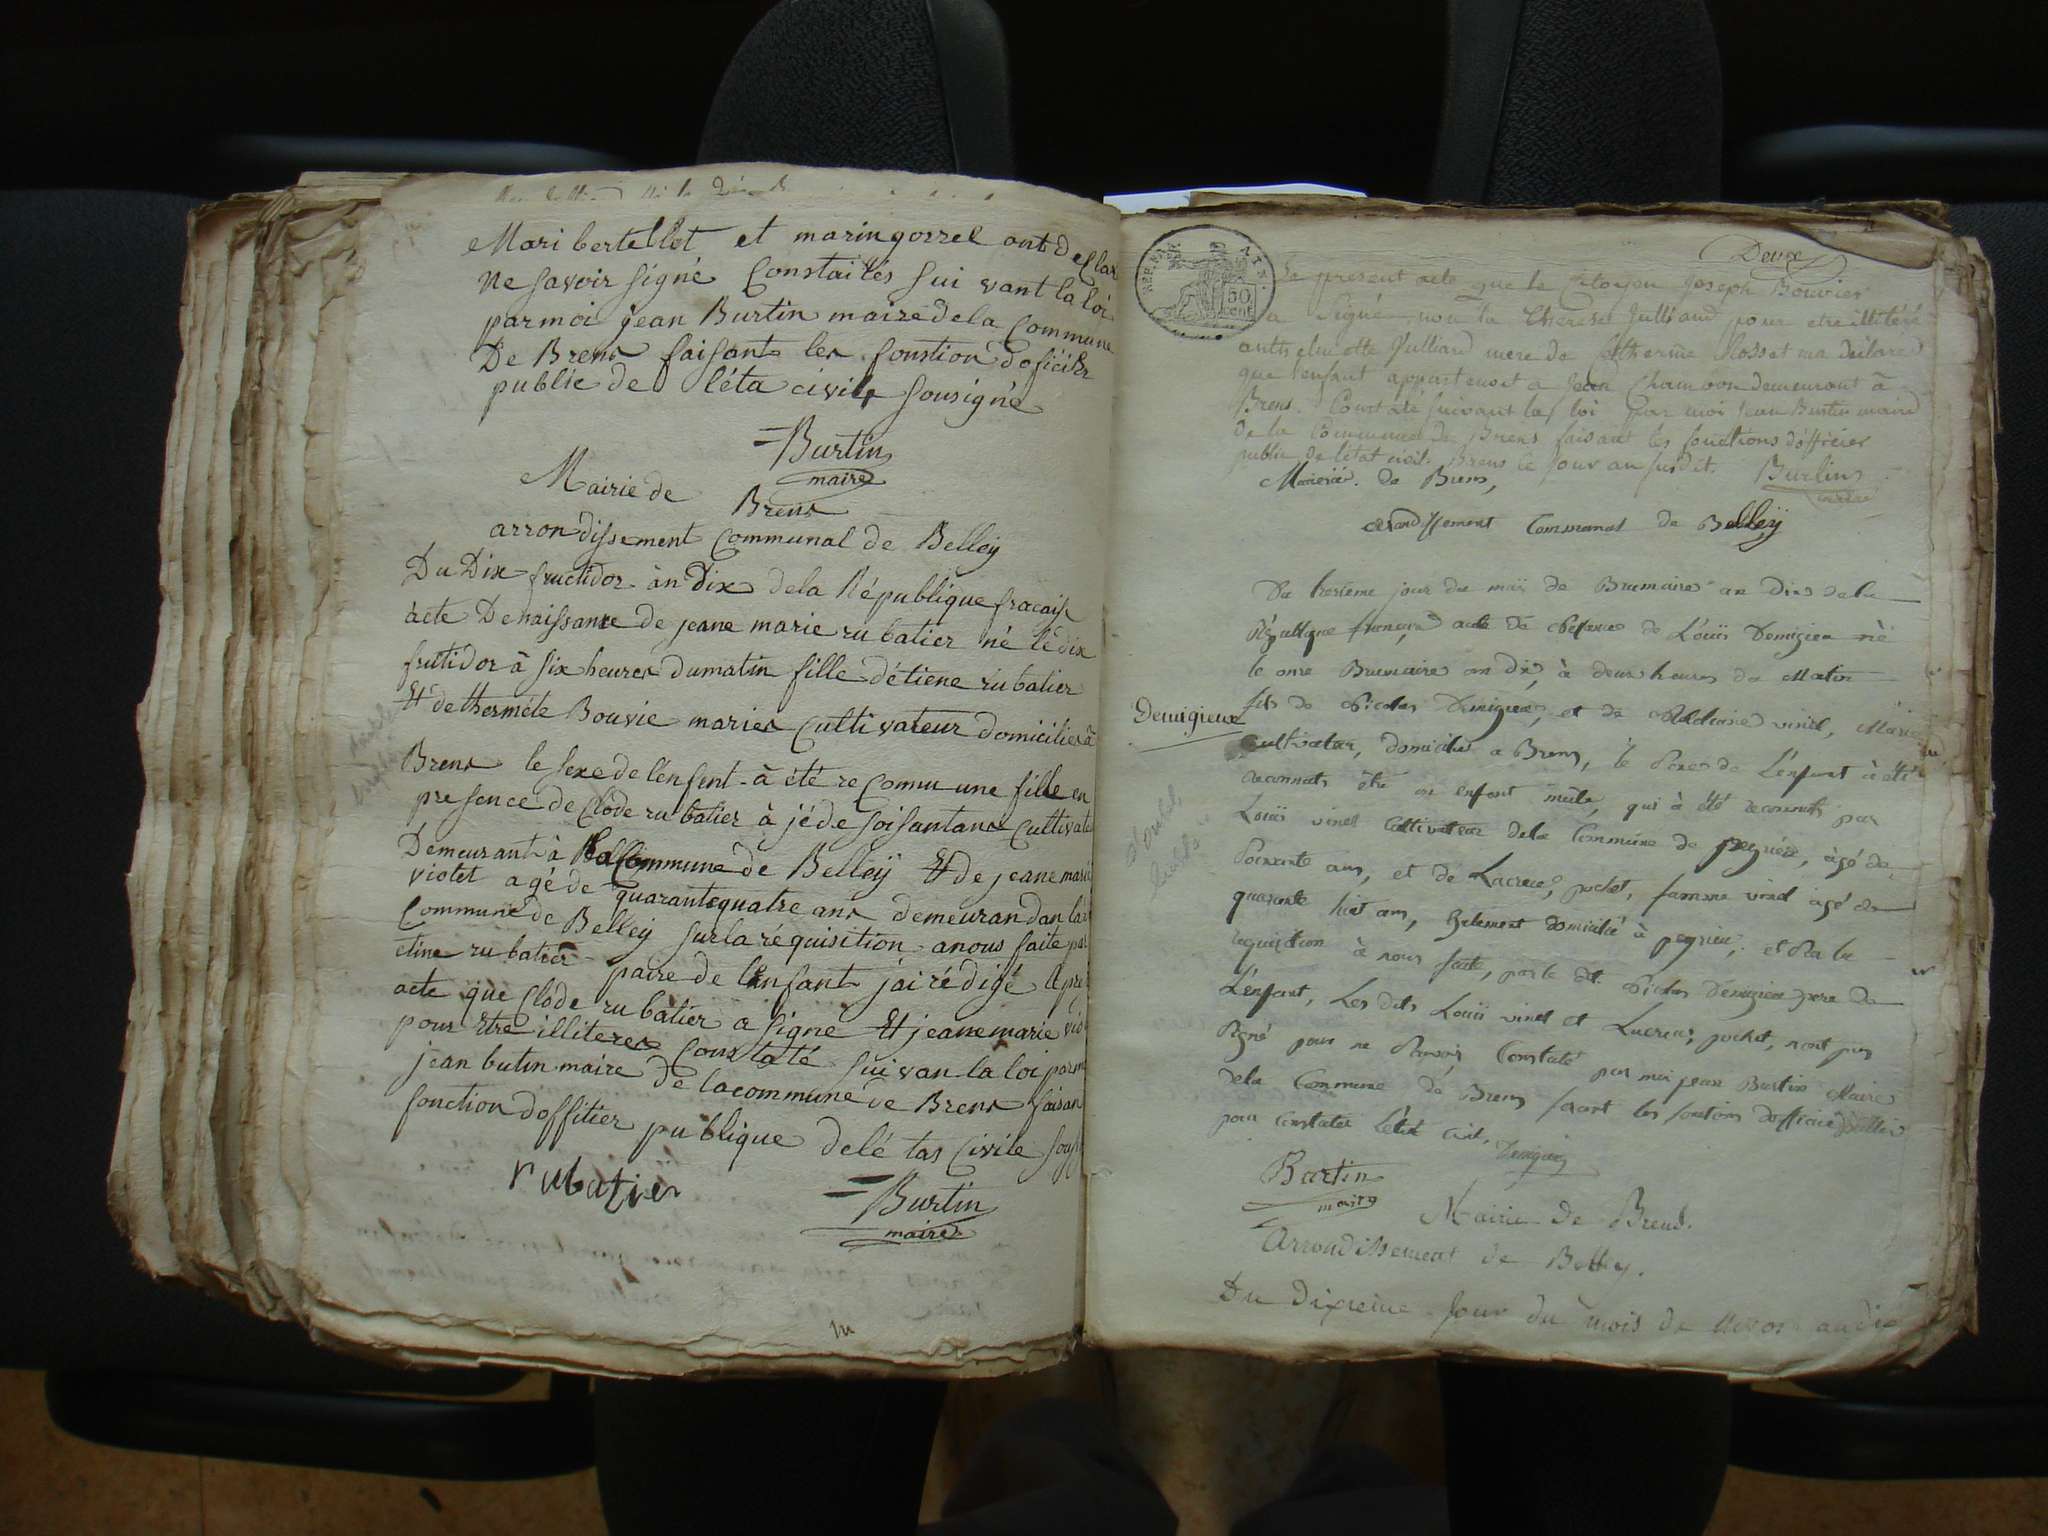 Mari bertellot et marin gorrel ont deClar
ne savoir signé Constaités suivant la loi
par moi jean Burtin maire de la Commune
De Brens faisant les fonstion doficier
publie de léta civile sousigné
Burtin
maire
Mairie de
Brens
arrondissement Communal de Belley
Du Dix fructidor àn Dix de la République fracaise
acte De naissance de jeane marie rubatier né le dix
frutidor à six heures du matin fille détiene rubatier
Et de Bouvie maries Cultivateur domiciliés à
Brens le sexe de lenfent à été reConnu une fille en
presence de Clode rubatier à jé de soisantans Cultivate
Demeurant à la Commune de Belleÿ Et de jeane marie
violet agé de quarantequatre ans demeuran dan la
Commune de Belley sur la réquisition a nous faite par
etine rubatier paire de lenfant jai rédigé le pre
acte que Clode rubatier a signé Et jeane marie vio
pour Etre illiteres Constaté suivan la loi par m
jean butin maire de la commune de Brens faisan
fonction doffitier publique de lé tas Civile sous
rubatier
Burtin
maire
Deux
REP. FRA.
50
cent
le present acte que le Citoyen Joseph Bouvier
a signé non la Therese Julliand pour etre illiteré
Julliard mere de Catherine Rosset ma déclaré
que lenfant appartenoit a Jean Chamoon demeurant à
Brens. Constaté suivant la loi par moi Jean Burtin maire
de la Commune de Brens faisant les fonctions d'officier
public de l'état civil. Brens le jour an susdit. Burtin
maire
Mairié de Brens,
arrondissement Communal de Belleÿ
Du tresieme jour du mois de Brumaire an dix de la
République francaise acte de naissance de Louis Demigieu né
le onze Brumaire an dix, à deux heures du Matin
Demigieux
fils de Nicolas Demigieu, et de vinet, Mariés
Cultivateur, domicilié a Brens, le sexe de L'enfant à été
reconnut être un enfant mâle, qui à été reconnut par
Louis vinet Cultivateur de la Commune de peyrieu, agé de
soixante ans, et de Lucrece pochet, famme vinet agé de
quarante huit ans, Egelement domicilié à peyrieu, et sur la
requisition à nous faite, par le dit Nicolas Demigieu pere de
L'enfant, Les dits Louis vinet et Lucrece pochet, n'ont pas
signé pour ne savoir, Constaté par moi jean Burtin Maire
de la Commune de Brens faisant les fonctions d'officier public
pour constater l'état civil.
Demigieu
Burtin
maire
Mairie de Brens.
Arrondissement de Belley.
Du dixieme Jour du mois de nivos an dix